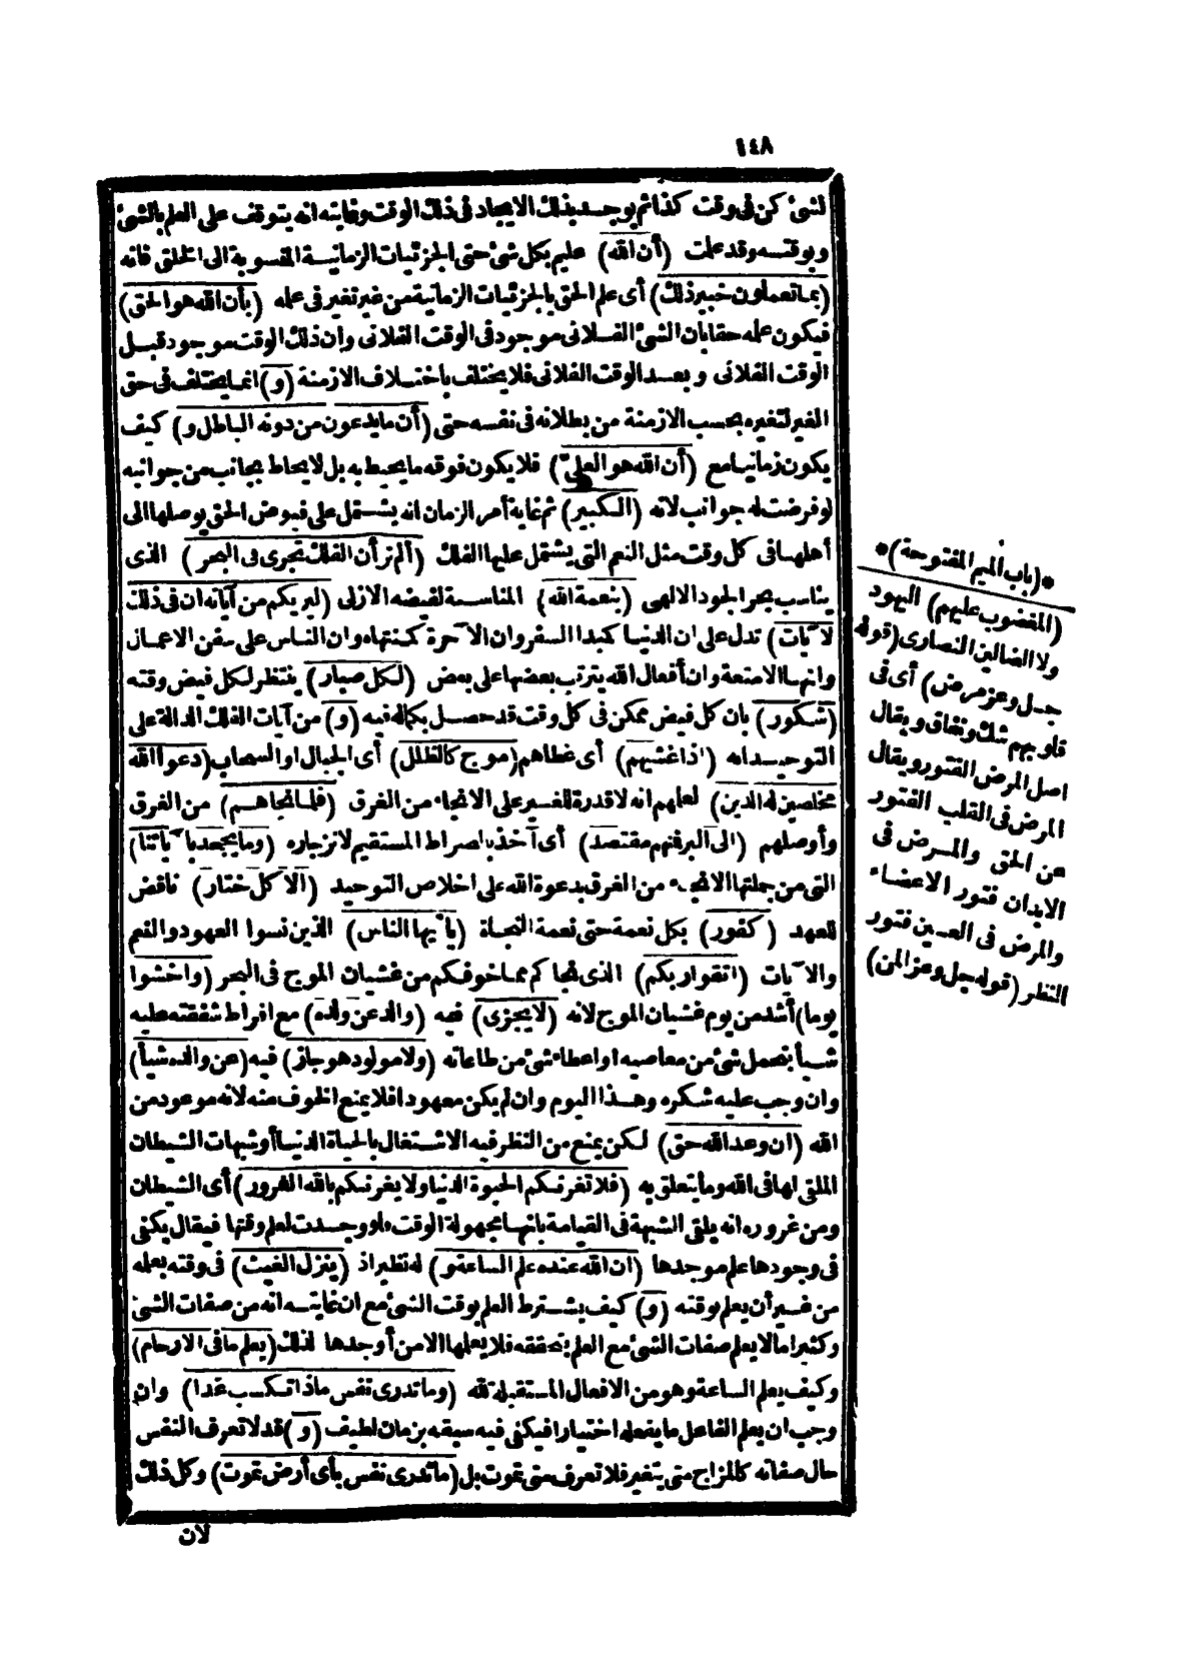 ١٤٨
لشئ كن فى وقت كذا ثم يوجد بذلك الايجاد فى ذلك الوقت وغايته انه يتوقف على العلم بالشئ
وبوقته وقد علمت (أن الله) عليم بكل شئ حتى الجزئيات الزمانية المنسوبة الى الخلق فانه
(بما تعملون خبير ذلك) أى علم الحق بالجزئيات الزمانية من غير تغير فى علمه (بأن الله هو الحق)
فيكون علمه حقا بان الشئ الفلانى موجود فى الوقت الفلانى وان ذلك الوقت موجود قبل
الوقت الفلانى وبعد الوقت الفلانى فلا يختلف باختلاف الازمنة (و) انما يختلف فى حق
المغير لتغيره بحسب الازمنة من بطلانه فى نفسه حتى (أن ما يدعون من دونه الباطل و) كيف
يكون زمانيا مع (أن الله هو العلى) فلا يكون فوقه ما يحيط به بل لا يحاط بجانب من جوانبه
لو فرضت له جوانب لانه (الكبير) ثم غاية أمر الزمان انه يشتمل على فيوض الحق يوصلها الى
أهلها فى كل وقت مثل النعم التى يشتمل عليها الفلك (ألم تر أن الفلك تجرى فى البحر) الذى
يناسب بحر الجود الالهى (بنعمة الله) المناسبة لفيضه الازلى (ليريكم من آياته ان فى ذلك
لآيات) تدل على ان الدنيا كمبدا السفر وان الآخرة كمنتهاه وان الناس على سفن الاعمال
وانها الامتعة وان أفعال الله يترتب بعضها على بعض (لكل صبار) ينتظر لكل فيض وقته
(شكور) بان كل فيض ممكن فى كل وقت قد حصل بكماله فيه (و) من آيات الفلك الدالة على
التوحيد انه (اذا غشيهم) أى غطاهم (موج كالظلل) أى الجبال او السحاب (دعوا الله
مخلصين له الدين) لعلهم انه لا قدرة للغير على الانجاء من الغرق (فلما نجاهم) من الغرق
وأوصلهم (الى البر فمنهم مقتصد) أى آخذ بالصراط المستقيم لانزجاره (وما يجحد بآياتنا)
التى من جملتها الانجاء من الغرق بدعوة الله على اخلاص التوحيد (الا كل ختار) ناقض
للعهد (كفور) بكل نعمة حتى نعمة النجاة (يا أيها الناس) الذين نسوا العهود والنعم
والآيات (اتقوا ربكم) الذى نجاكم مما خوفكم من غشيان الموج فى البحر (واخشوا
يوما) أشد من يوم غشيان الموج لانه (لا يجزى) فيه (والد عن ولده) مع افراط شفقته عليه
شيأ بتحمل شئ من معاصيه او اعطاء شئ من طاعاته (ولا مولود هو جاز) فيه (عن والده شيأ)
وان وجب عليه شكره وهذا اليوم وان لم يكن معهودا فلا يمنع الخوف منه لانه موعود من
الله (ان وعد الله حق) لكن يمنع من النظر فيه الاشتغال بالحياة الدنيا أو شبهات الشيطان
الملقى لها فى الله وما يتعلق به (فلا تغرنكم الحيوة الدنيا ولا يغرنكم بالله الغرور) أى الشيطان
ومن غروره انه يلقى الشبهة فى القيامة بانها مجهولة الوقت ولو وجدت لعلم وقتها فيقال يكفى
فى وجودها علم موجدها (ان الله عنده علم الساعة و) له نظير اذ (ينزل الغيث) فى وقته بعلمه
من غير أن يعلم بوقته (و) كيف يشترط العلم بوقت الشئ مع ان غايته انه من صفات الشئ
وكثيرا ما لا يعلم صفات الشئ مع العلم بتحققه فلا يعلمها الا من أوجدها لذلك (يعلم ما فى الارحام)
وكيف يعلم الساعة وهو من الافعال المستقبلة لله (وما تدرى نفس ماذا تكسب غدا) وان
وجب ان يعلم الفاعل ما يفعله اختيارا فيكفى فيه سبقه بزمان لطيف (و) قد لا تعرف النفس
حال صفاته كالمزاج متى يتغير فلا تعرف متى تموت بل (ما تدرى نفس بأى أرض تموت) وكل ذلك
لان
*(باب الميم المفتوحة)*
(المغضوب عليهم) اليهود
ولا الضالين النصارى (قوله
جل وعز مرض) أى فى
قلوبهم شك ونفاق ويقال
اصل المرض الفتور ويقال
المرض فى القلب الفتور
عن الحق والمرض فى
الابدان فتور الاعضاء
والمرض فى العين فتور
النظر (قوله جل وعز المن)